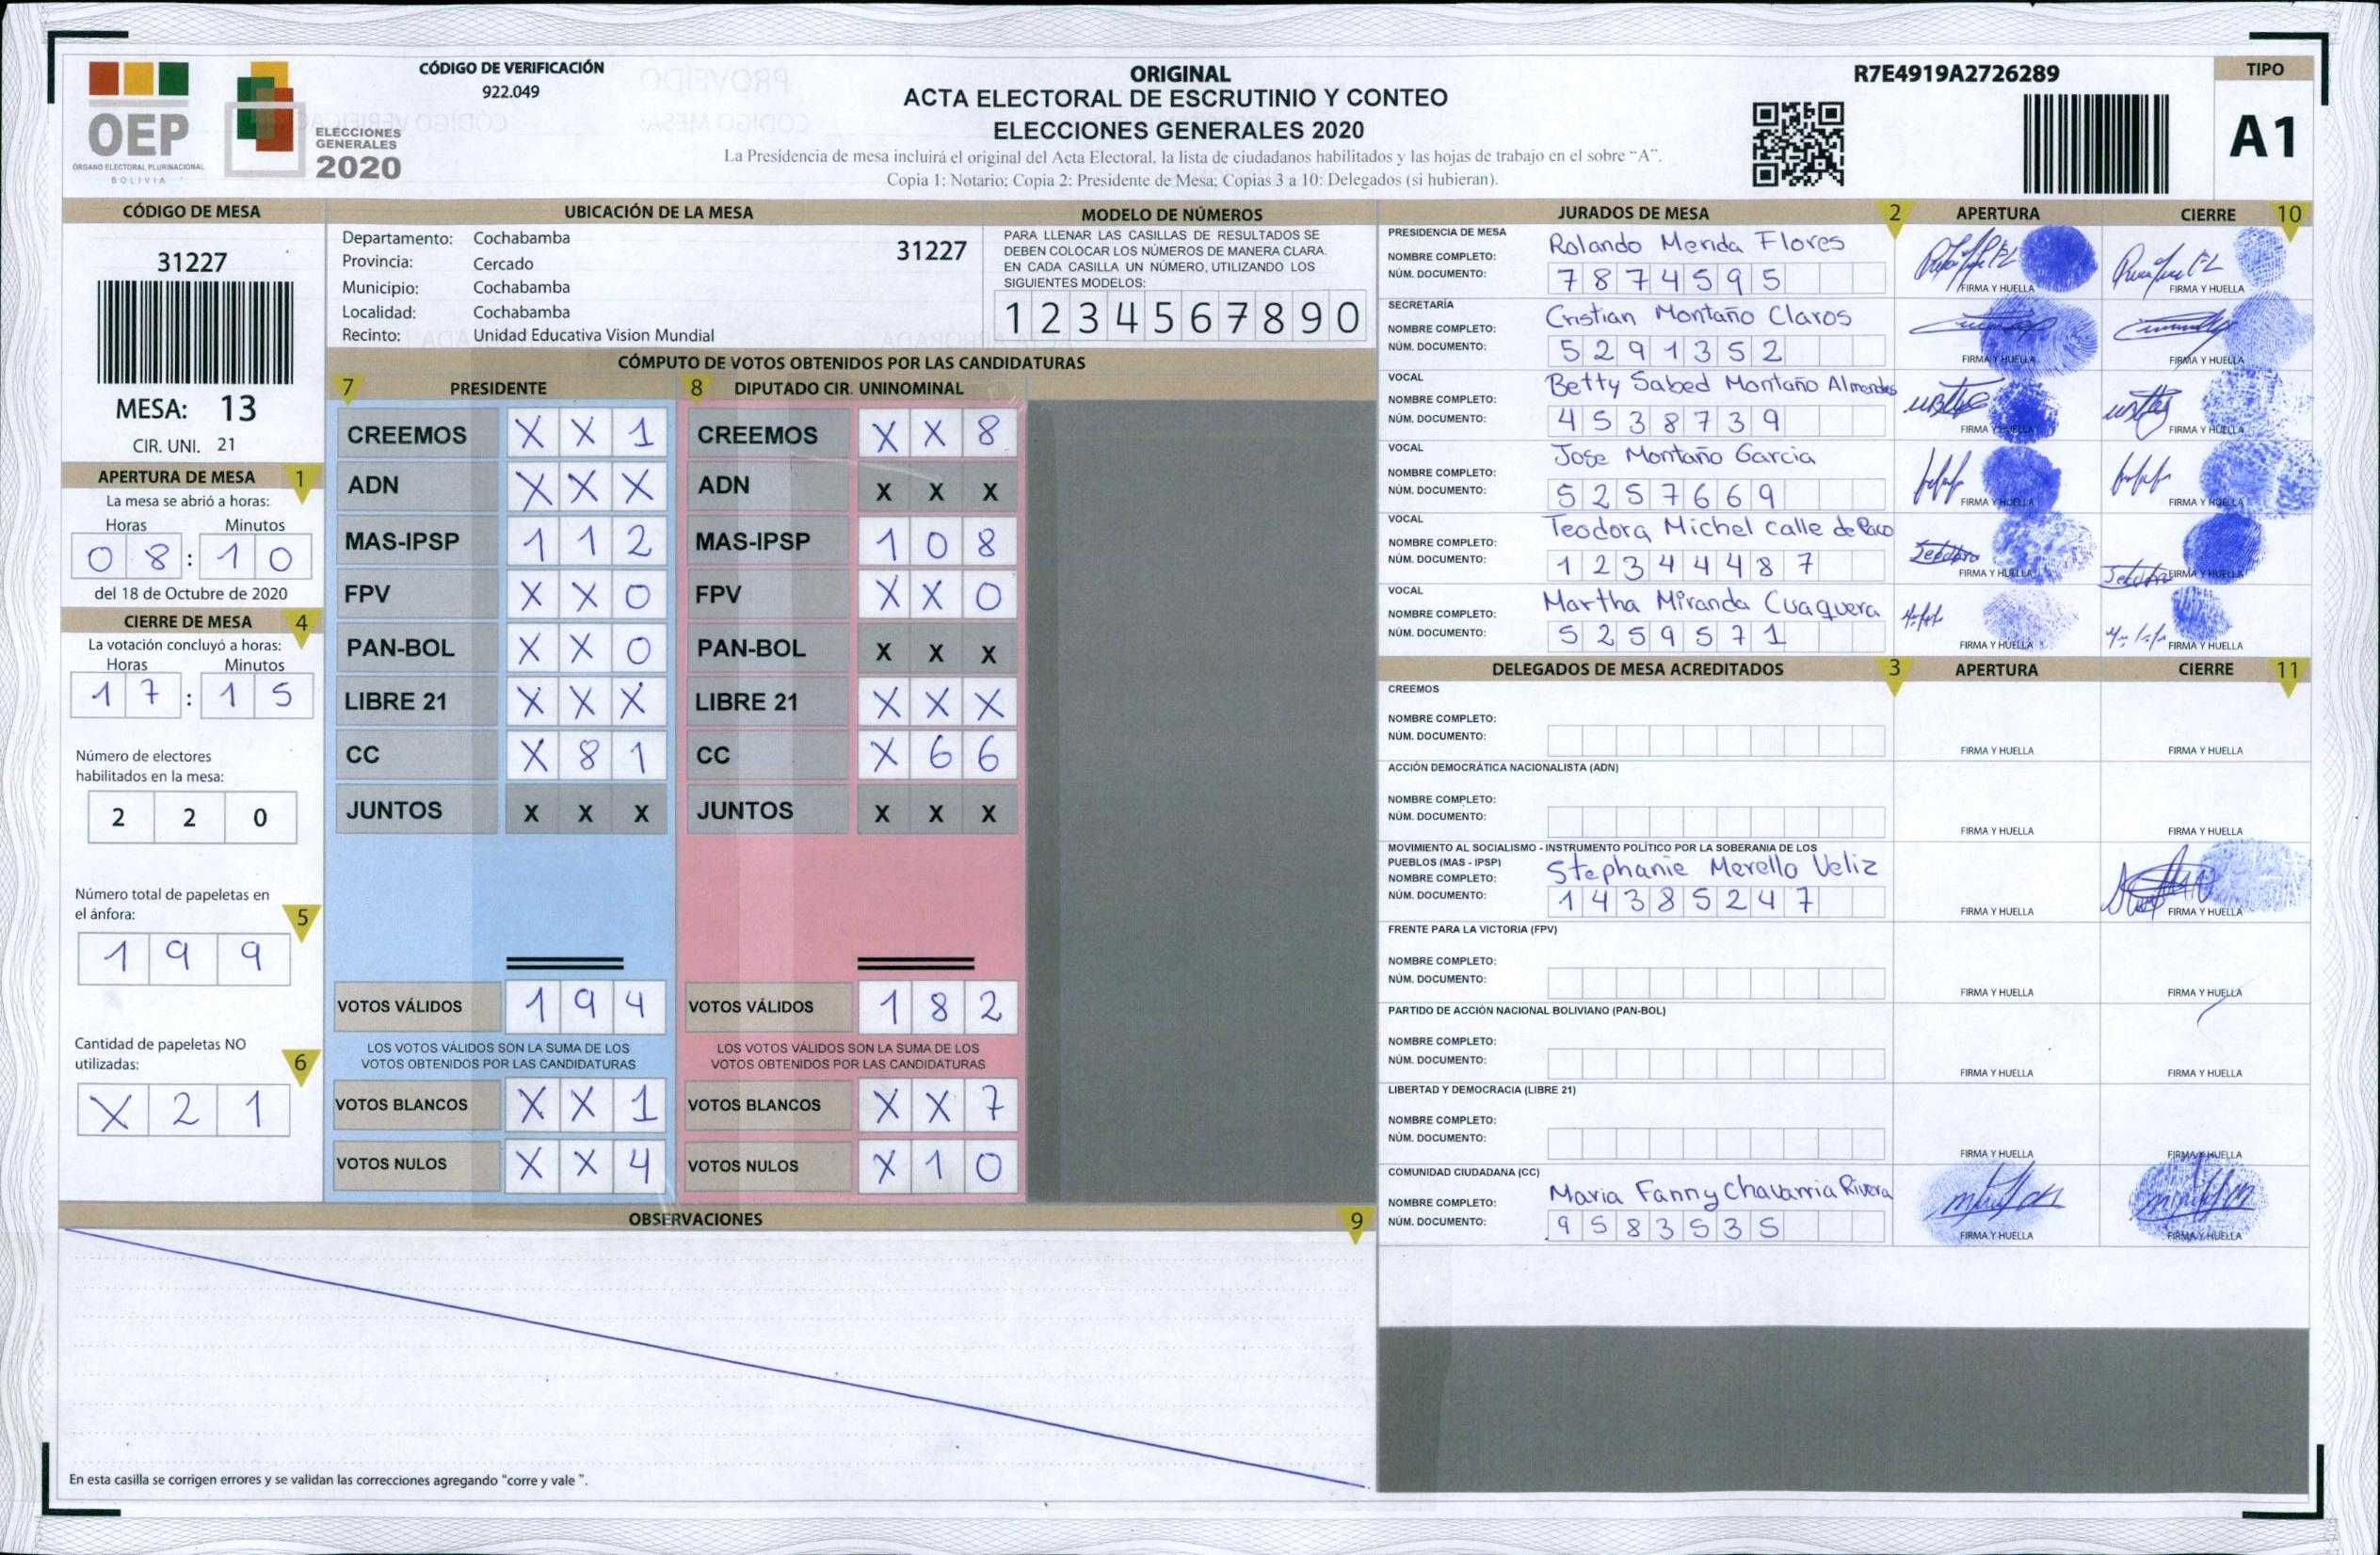 OEP
ÓRGANO ELECTORAL PLURINACIONAL
BOLIVIA
ELECCIONES
GENERALES
2020
CÓDIGO DE VERIFICACIÓN
922.049
ORIGINAL
ACTA ELECTORAL DE ESCRUTINIO Y CONTEO
ELECCIONES GENERALES 2020
La Presidencia de mesa incluirá el original del Acta Electoral, la lista de ciudadanos habilitados y las hojas de trabajo en el sobre "A".
Copia 1: Notario; Copia 2: Presidente de Mesa; Copias 3 a 10: Delegados (si hubieran).
R7E4919A2726289
TIPO
A1
CÓDIGO DE MESA
31227
MESA: 13
CIR. UNI. 21
APERTURA DE MESA 1
La mesa se abrió a horas:
Horas Minutos
0 8 : 1 0
del 18 de Octubre de 2020
CIERRE DE MESA 4
La votación concluyó a horas:
Horas Minutos
1 7 : 1 5
Número de electores
habilitados en la mesa:
2 2 0
Número total de papeletas en
el ánfora: 5
1 9 9
Cantidad de papeletas NO
utilizadas: 6
X 2 1
UBICACIÓN DE LA MESA
Departamento: Cochabamba
31227
Provincia: Cercado
Municipio: Cochabamba
Localidad: Cochabamba
Recinto: Unidad Educativa Vision Mundial
MODELO DE NÚMEROS
PARA LLENAR LAS CASILLAS DE RESULTADOS SE
DEBEN COLOCAR LOS NÚMEROS DE MANERA CLARA.
EN CADA CASILLA UN NÚMERO, UTILIZANDO LOS
SIGUIENTES MODELOS:
1 2 3 4 5 6 7 8 9 0
CÓMPUTO DE VOTOS OBTENIDOS POR LAS CANDIDATURAS
7 PRESIDENTE 8 DIPUTADO CIR. UNINOMINAL
CREEMOS X X 1 CREEMOS X X 8
ADN X X X ADN X X X
MAS-IPSP 1 1 2 MAS-IPSP 1 0 8
FPV X X 0 FPV X X 0
PAN-BOL X X 0 PAN-BOL X X X
LIBRE 21 X X X LIBRE 21 X X X
CC X 8 1 CC X 6 6
JUNTOS X X X JUNTOS X X X
VOTOS VÁLIDOS 1 9 4 VOTOS VÁLIDOS 1 8 2
LOS VOTOS VÁLIDOS SON LA SUMA DE LOS LOS VOTOS VÁLIDOS SON LA SUMA DE LOS
VOTOS OBTENIDOS POR LAS CANDIDATURAS VOTOS OBTENIDOS POR LAS CANDIDATURAS
VOTOS BLANCOS X X 1 VOTOS BLANCOS X X 7
VOTOS NULOS X X 4 VOTOS NULOS X 1 0
OBSERVACIONES 9
En esta casilla se corrigen errores y se validan las correcciones agregando "corre y vale ".
JURADOS DE MESA 2 APERTURA CIERRE 10
PRESIDENCIA DE MESA
NOMBRE COMPLETO: Rolando Merida Flores
NÚM. DOCUMENTO: 7 8 7 4 5 9 5
FIRMA Y HUELLA FIRMA Y HUELLA
SECRETARÍA
NOMBRE COMPLETO: Cristian Montaño Claros
NÚM. DOCUMENTO: 5 2 9 1 3 5 2
FIRMA Y HUELLA FIRMA Y HUELLA
VOCAL
NOMBRE COMPLETO: Betty Sabed Montaño
NÚM. DOCUMENTO: 4 5 3 8 7 3 9
FIRMA Y HUELLA FIRMA Y HUELLA
VOCAL
NOMBRE COMPLETO: Jose Montaño Garcia
NÚM. DOCUMENTO: 5 2 5 7 6 6 9
FIRMA Y HUELLA FIRMA Y HUELLA
VOCAL
NOMBRE COMPLETO: Teodora Michel Calle de Paco
NÚM. DOCUMENTO: 1 2 3 4 4 4 8 7
FIRMA Y HUELLA FIRMA Y HUELLA
VOCAL
NOMBRE COMPLETO: Martha Miranda Cuaquera
NÚM. DOCUMENTO: 5 2 5 9 5 7 1
FIRMA Y HUELLA FIRMA Y HUELLA
DELEGADOS DE MESA ACREDITADOS 3 APERTURA CIERRE 11
CREEMOS
NOMBRE COMPLETO:
NÚM. DOCUMENTO:
FIRMA Y HUELLA FIRMA Y HUELLA
ACCIÓN DEMOCRÁTICA NACIONALISTA (ADN)
NOMBRE COMPLETO:
NÚM. DOCUMENTO:
FIRMA Y HUELLA FIRMA Y HUELLA
MOVIMIENTO AL SOCIALISMO - INSTRUMENTO POLÍTICO POR LA SOBERANIA DE LOS
PUEBLOS (MAS - IPSP)
NOMBRE COMPLETO: Stephanie Merello Veliz
NÚM. DOCUMENTO: 1 4 3 8 5 2 4 7
FIRMA Y HUELLA FIRMA Y HUELLA
FRENTE PARA LA VICTORIA (FPV)
NOMBRE COMPLETO:
NÚM. DOCUMENTO:
FIRMA Y HUELLA FIRMA Y HUELLA
PARTIDO DE ACCIÓN NACIONAL BOLIVIANO (PAN-BOL)
NOMBRE COMPLETO:
NÚM. DOCUMENTO:
FIRMA Y HUELLA FIRMA Y HUELLA
LIBERTAD Y DEMOCRACIA (LIBRE 21)
NOMBRE COMPLETO:
NÚM. DOCUMENTO:
FIRMA Y HUELLA FIRMA Y HUELLA
COMUNIDAD CIUDADANA (CC)
NOMBRE COMPLETO: Maria Fanny Chavarria Rivera
NÚM. DOCUMENTO: 9 5 8 3 5 3 5
FIRMA Y HUELLA FIRMA Y HUELLA